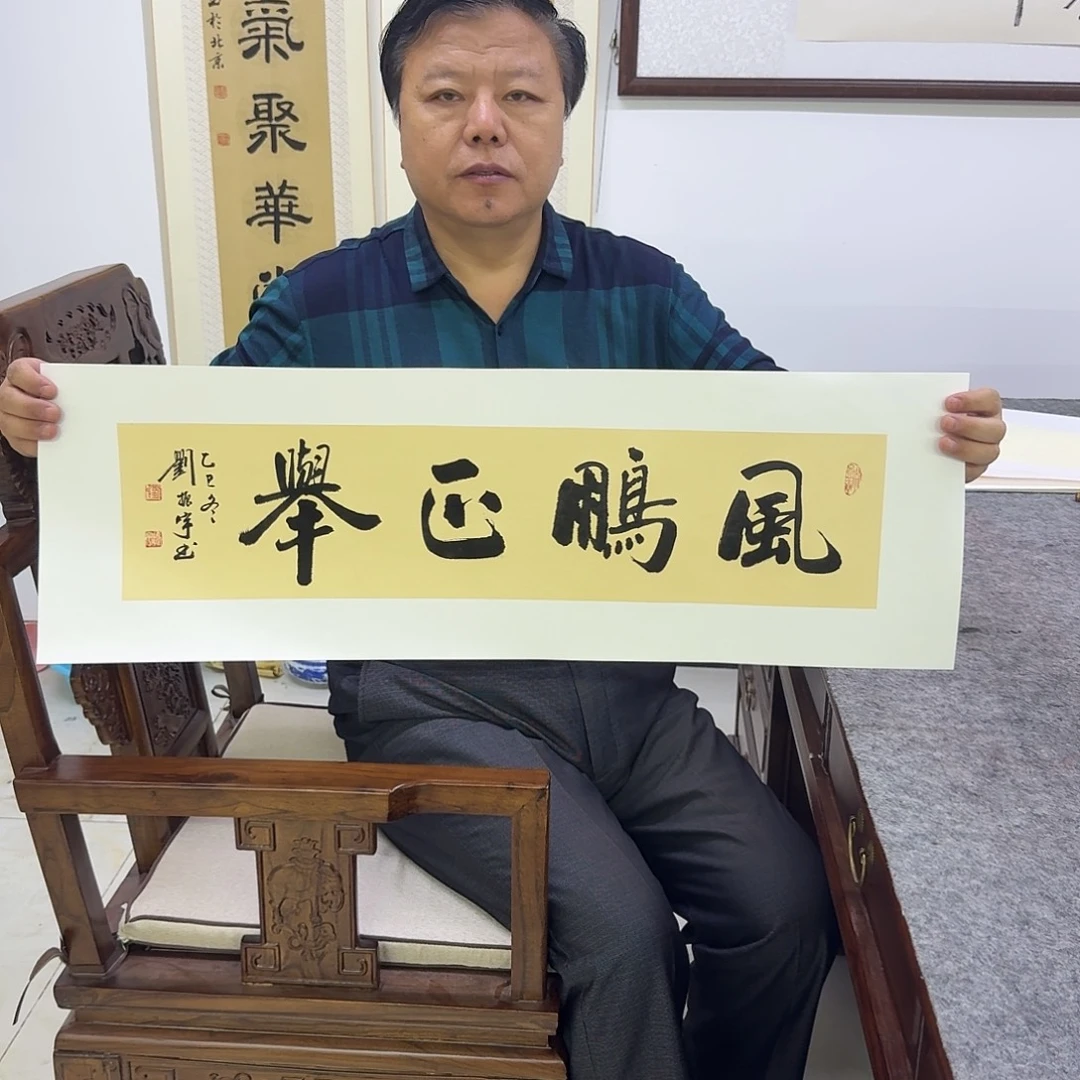 風鵬正舉
乙巳冬
劉振宇书
氣聚華
於北京